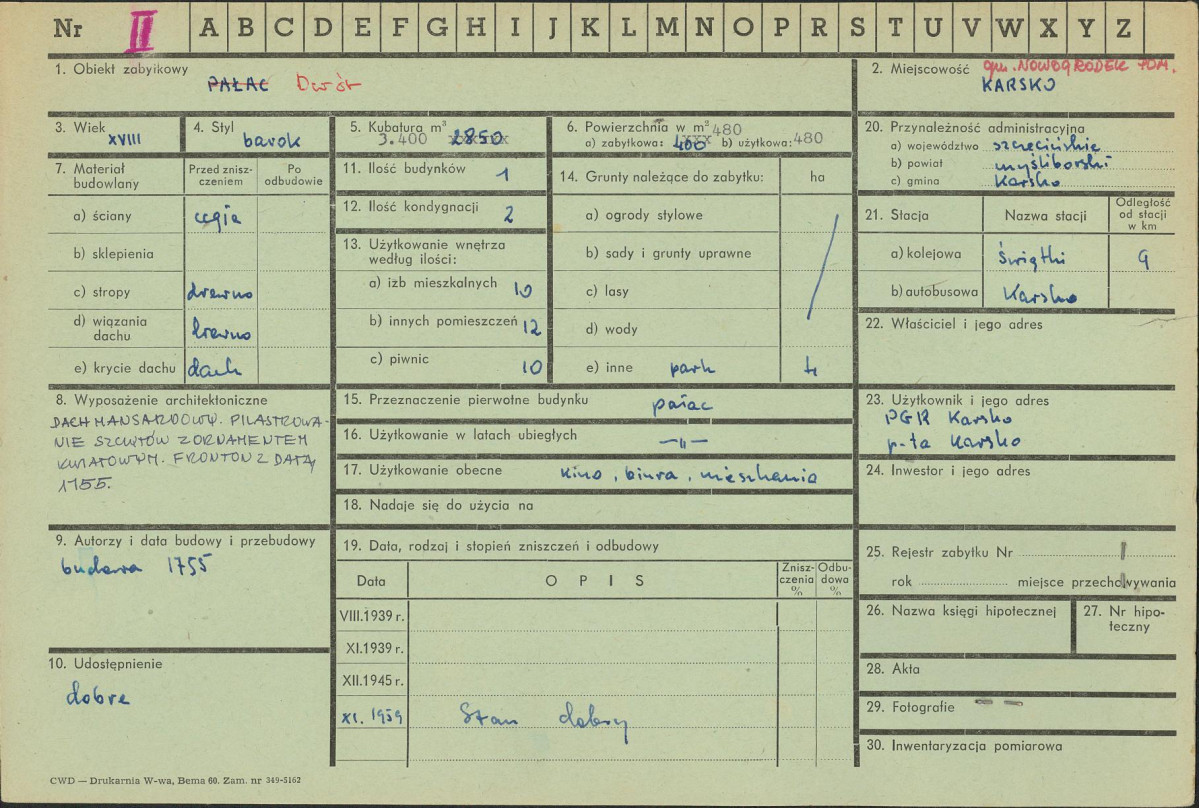 Nr II A B C D E F G H I J K L M N O P R S T U V W X Y Z
1. Obiekt zabytkowy
PAŁAC Dwór
2. Miejscowość gm. NOWOGRÓDEK POM.
KARSKO
3. Wiek
XVIII
4. Styl
barok
5. Kubatura m³
3.400 2850
6. Powierzchnia w m² 480
a) zabytkowa: 400 b) użytkowa: 480
20. Przynależność administracyjna
a) województwo szczecińskie
b) powiat myśliborski
c) gmina Karsko
7. Materiał budowlany
Przed zniszczeniem
Po odbudowie
a) ściany cegła
b) sklepienia
c) stropy drewno
d) wiązania dachu drewno
e) krycie dachu dach
11. Ilość budynków 1
12. Ilość kondygnacji 2
13. Użytkowanie wnętrza
według ilości:
a) izb mieszkalnych 10
b) innych pomieszczeń 12
c) piwnic 10
14. Grunty należące do zabytku: ha
a) ogrody stylowe
b) sady i grunty uprawne
c) lasy
d) wody
e) inne park 4
21. Stacja
Nazwa stacji
Odległość
od stacji
w km
a) kolejowa Świątki 9
b) autobusowa Karsko
22. Właściciel i jego adres
8. Wyposażenie architektoniczne
DACH MANSARDOWY. PILASTROWA-
NIE SZCZYTÓW Z ORNAMENTEM
KWIATOWYM. FRONTON Z DATĄ
1755.
15. Przeznaczenie pierwotne budynku pałac
16. Użytkowanie w latach ubiegłych —"—
17. Użytkowanie obecne kino, biura, mieszkania
18. Nadaje się do użycia na
23. Użytkownik i jego adres
PGR Karsko
p-ta Karsko
24. Inwestor i jego adres
9. Autorzy i data budowy i przebudowy
budowa 1755
19. Data, rodzaj i stopień zniszczeń i odbudowy
Data
O P I S
Znisz-
czenia
%
Odbu-
dowa
%
VIII.1939 r.
XI.1939 r.
XII.1945 r.
XI. 1959 Stan dobry
25. Rejestr zabytku Nr
rok miejsce przechowywania
26. Nazwa księgi hipotecznej
27. Nr hipo-
teczny
10. Udostępnienie
dobre
28. Akta
29. Fotografie
30. Inwentaryzacja pomiarowa
CWD — Drukarnia W-wa, Bema 60. Zam. nr 349-5162